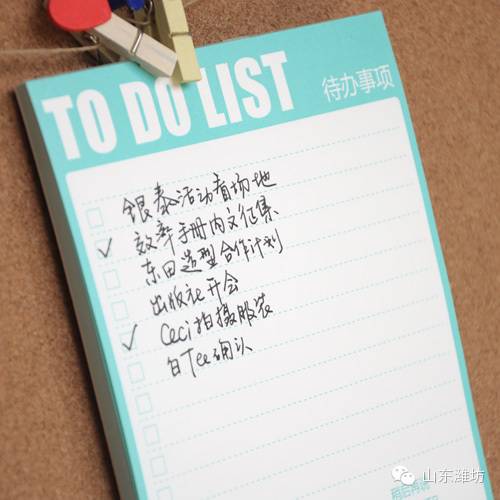 TO DO LIST
待办事项
银泰活动看场地
效率手册内文征集
东田造型合作计划
出版社开会
Ceci拍摄服装
白Tee确认
山东潍坊